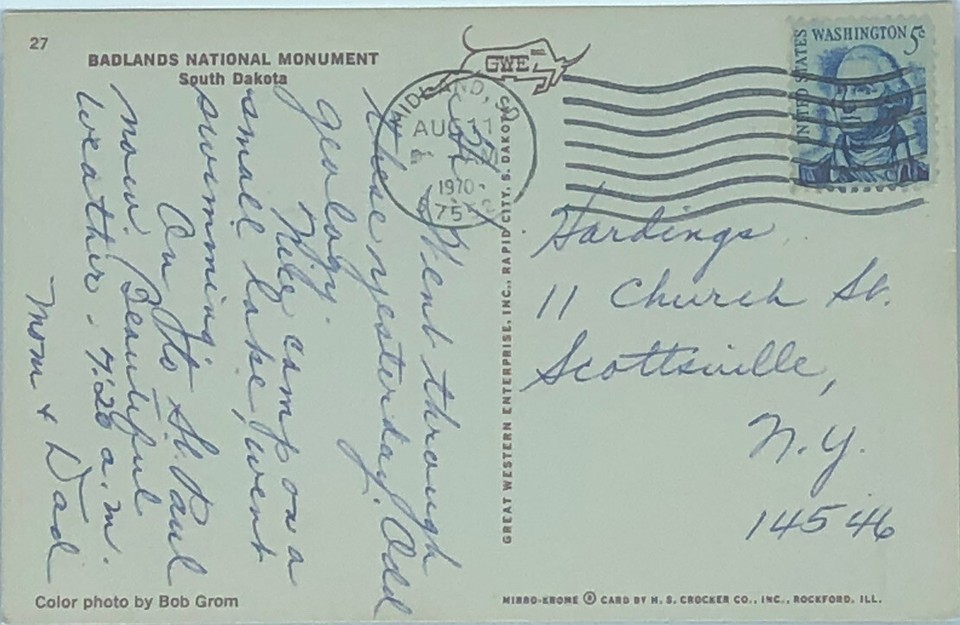 27
BADLANDS NATIONAL MONUMENT
South Dakota
GWE
MIDLAND, SD
AUG 11
1970
575
UNITED STATES
WASHINGTON 5c
Went through
these yesterday. Odd
geology.
Nice camp on a
small lake, went
swimming.
On to St. Paul
now. Beautiful
weather. 7:20 a.m.
Mom + Dad
GREAT WESTERN ENTERPRISE, INC., RAPID CITY, S. DAKOTA
Hardings
11 Church St.
Scottsville,
N.Y.
14546
Color photo by Bob Grom
MIRRO-KROME ® CARD BY H. S. CROCKER CO., INC., ROCKFORD, ILL.